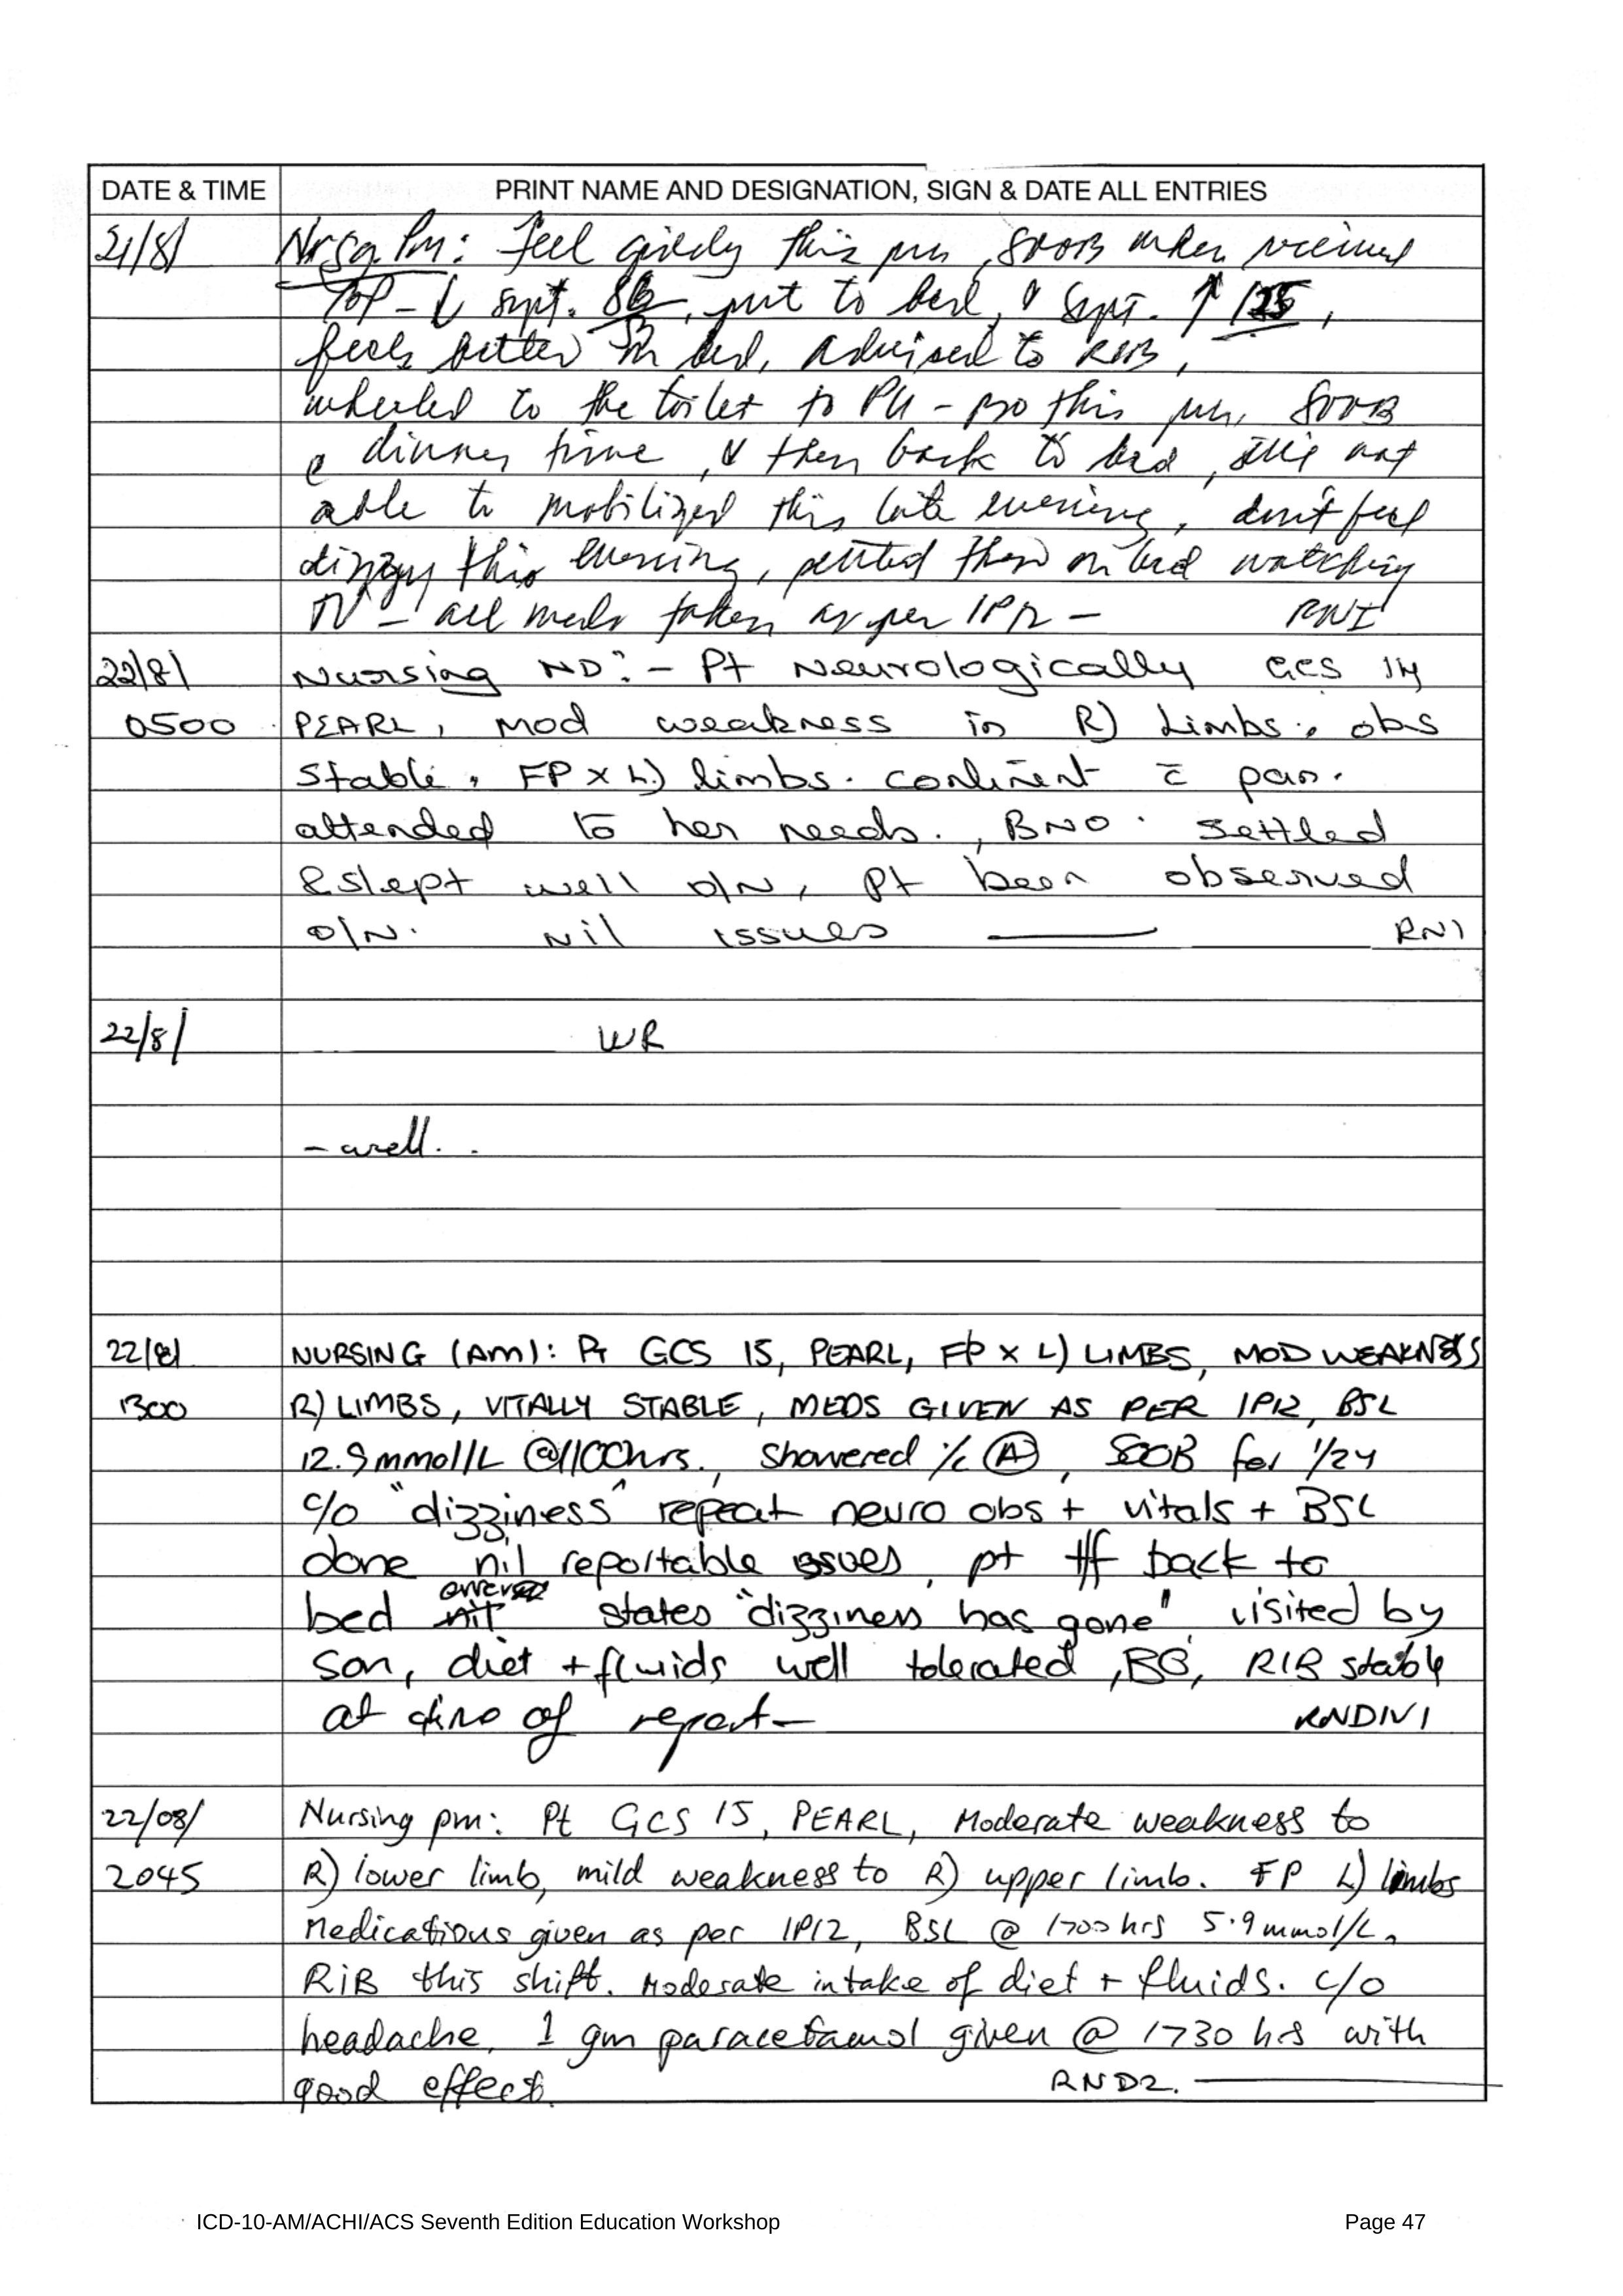 DATE & TIME PRINT NAME AND DESIGNATION, SIGN & DATE ALL ENTRIES
21/8/ Nrsg Pm: Feel giddy this pm, SOOB when received
- ↓ syst. , put to bed, & syst. ↑ 125,
feels better in bed, advised to RIB,
wheeled to the toilet to PU - this pm, SOOB
@ dinner time, & then back to bed, still not
able to mobilized this late evening, don't feel
dizzy this evening, settled then on bed watching
TV - all meds taken as per IP12 - RN1
22/8/ Nursing ND:- Pt Neurologically GCS 14
0500 PEARL, Mod weakness in R) Limbs. obs
stable. FP x L) limbs. continent c̄ pan.
attended to her needs., BNO. settled
& slept well O/N, Pt been observed
O/N. Nil issues RN1
22/8/ WR
- well.
22/8/ NURSING (AM): Pt GCS 15, PEARL, FP x L) LIMBS, MOD WEAKNESS
1300 R) LIMBS, VITALLY STABLE, MEDS GIVEN AS PER IP12, BSL
12.9mmol/L @1100hrs., Showered c̄ (A), SOOB for 1/24
c/o "dizziness" repeat neuro obs + vitals + BSL
done nil reportable issues, pt t/f back to
bed states "dizziness has gone" visited by
son, diet + fluids well tolerated, BO, RIB stable
at time of report - RNDIV1
22/08/ Nursing pm: Pt GCS 15, PEARL, Moderate weakness to
2045 R) lower limb, mild weakness to R) upper limb. FP L) limbs
Medications given as per IP12, BSL @ 1700 hrs 5.9 mmol/L.
RiB this shift. Moderate intake of diet + fluids. c/o
headache, 1 gm paracetamol given @ 1730 hrs with
good effect. RND2.
ICD-10-AM/ACHI/ACS Seventh Edition Education Workshop Page 47